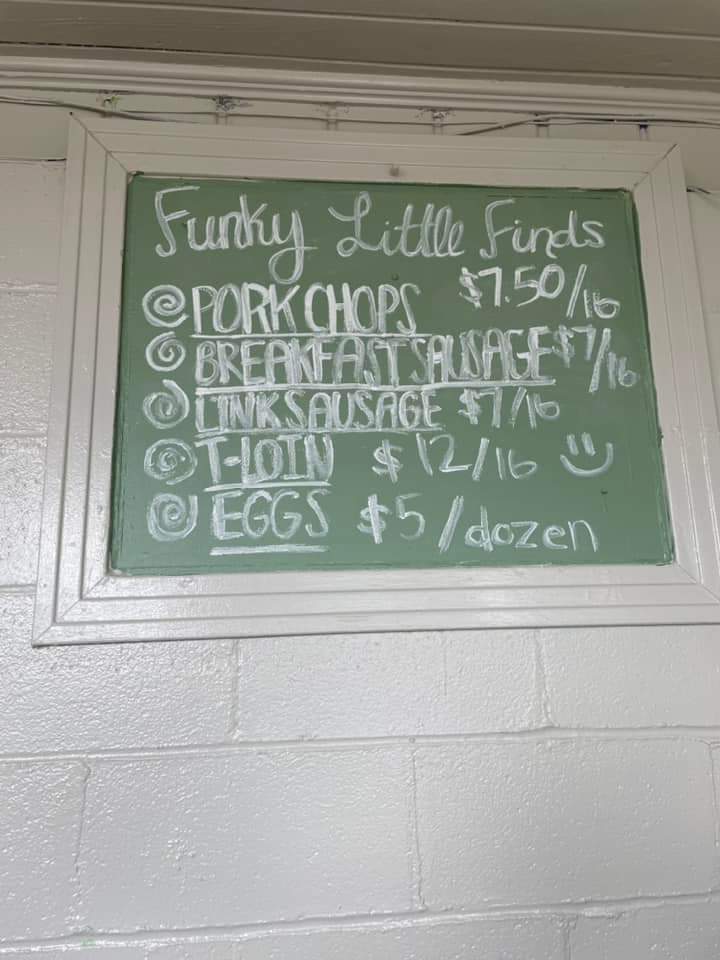 Funky Little Finds
PORK CHOPS $7.50/lb
BREAKFAST SAUSAGE $7/lb
LINK SAUSAGE $7/lb
T-LOIN $12/lb
EGGS $5/dozen